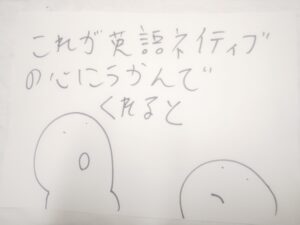 これが英語ネイティブ
の心にうかんで
くれると